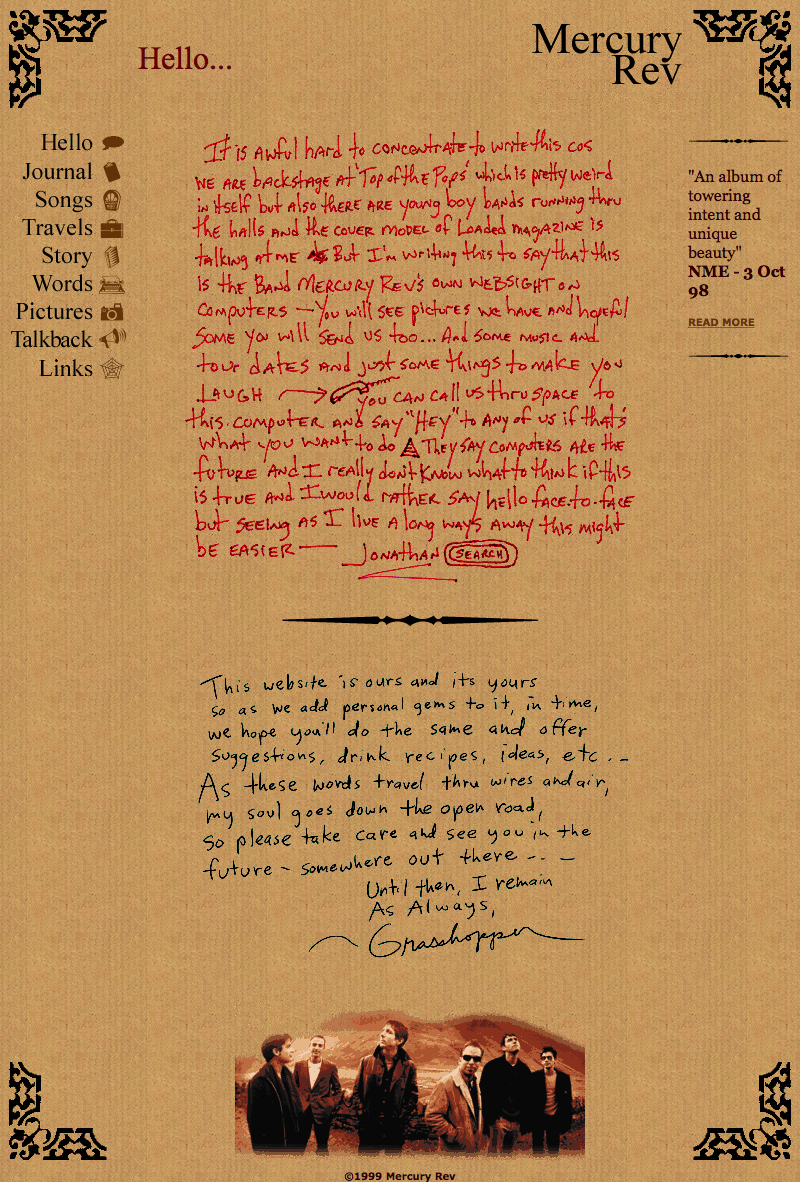 Hello...
Mercury
Rev
Hello
Journal
Songs
Travels
Story
Words
Pictures
Talkback
Links
It is awful hard to concentrate to write this cos
we are backstage at 'Top of the Pops' which is pretty weird
in itself but also there are young boy bands running thru
the halls and the cover model of Loaded magazine is
talking at me But I'm writing this to say that this
is the Band Mercury Rev's own websight on
computers — You will see pictures we have and hopeful
some you will send us too... And some music and
tour dates and just some things to make you
laugh you can call us thru space to
this computer and say "Hey" to any of us if that's
what you want to do They say computers are the
future and I really don't know what to think if this
is true and I would rather say hello face-to-face
but seeing as I live a long ways away this might
be easier — Jonathan SEARCH
This website is ours and its yours
so as we add personal gems to it, in time,
we hope you'll do the same and offer
suggestions, drink recipes, ideas, etc..-
As these words travel thru wires and air,
my soul goes down the open road,
so please take care and see you in the
future - somewhere out there -- -
Until then, I remain
As Always,
~ Grasshopper
"An album of
towering
intent and
unique
beauty"
NME - 3 Oct
98
READ MORE
©1999 Mercury Rev